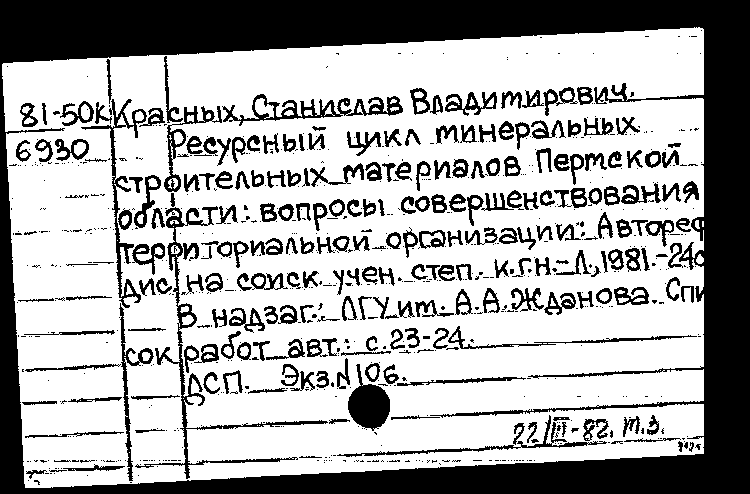 81-50к Красных, Станислав Владимирович.
6930 Ресурсный цикл минеральных
строительных материалов Пермской
области: вопросы совершенствования
территориальной организации: Автореф
дис. на соиск. учен. степ. к.г.н.-Л., 1981.-24с
В надзаг.: ЛГУ им. А.А.Жданова. Спи
сок работ авт.: с.23-24.
ДСП. Экз.N106.
22/III-82. т.з.